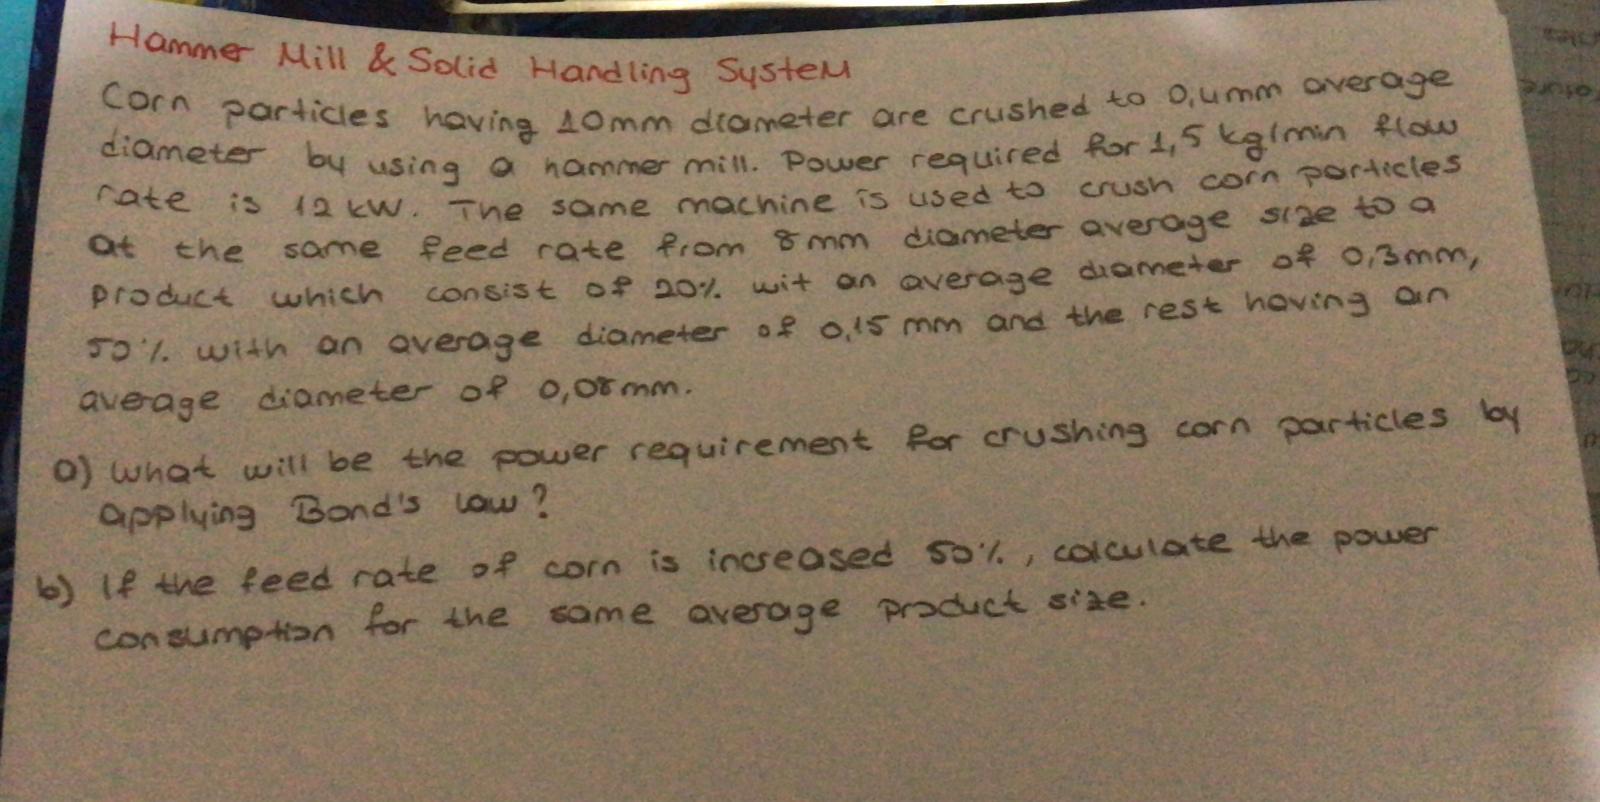 Hammer Mill & Solid Handling System
Corn particles having 10mm diameter are crushed to 0,4mm average
diameter by using a hammer mill. Power required for 1,5 kg/min flow
rate is 12 kW. The same machine is used to crush corn particles
at the same feed rate from 8mm diameter average size to a
product which consist of 20% wit an average diameter of 0,3mm,
50% with an average diameter of 0,15 mm and the rest having an
average diameter of 0,08mm.
a) What will be the power requirement for crushing corn particles by
applying Bond's law?
b) If the feed rate of corn is increased 50%, calculate the power
consumption for the same average product size.